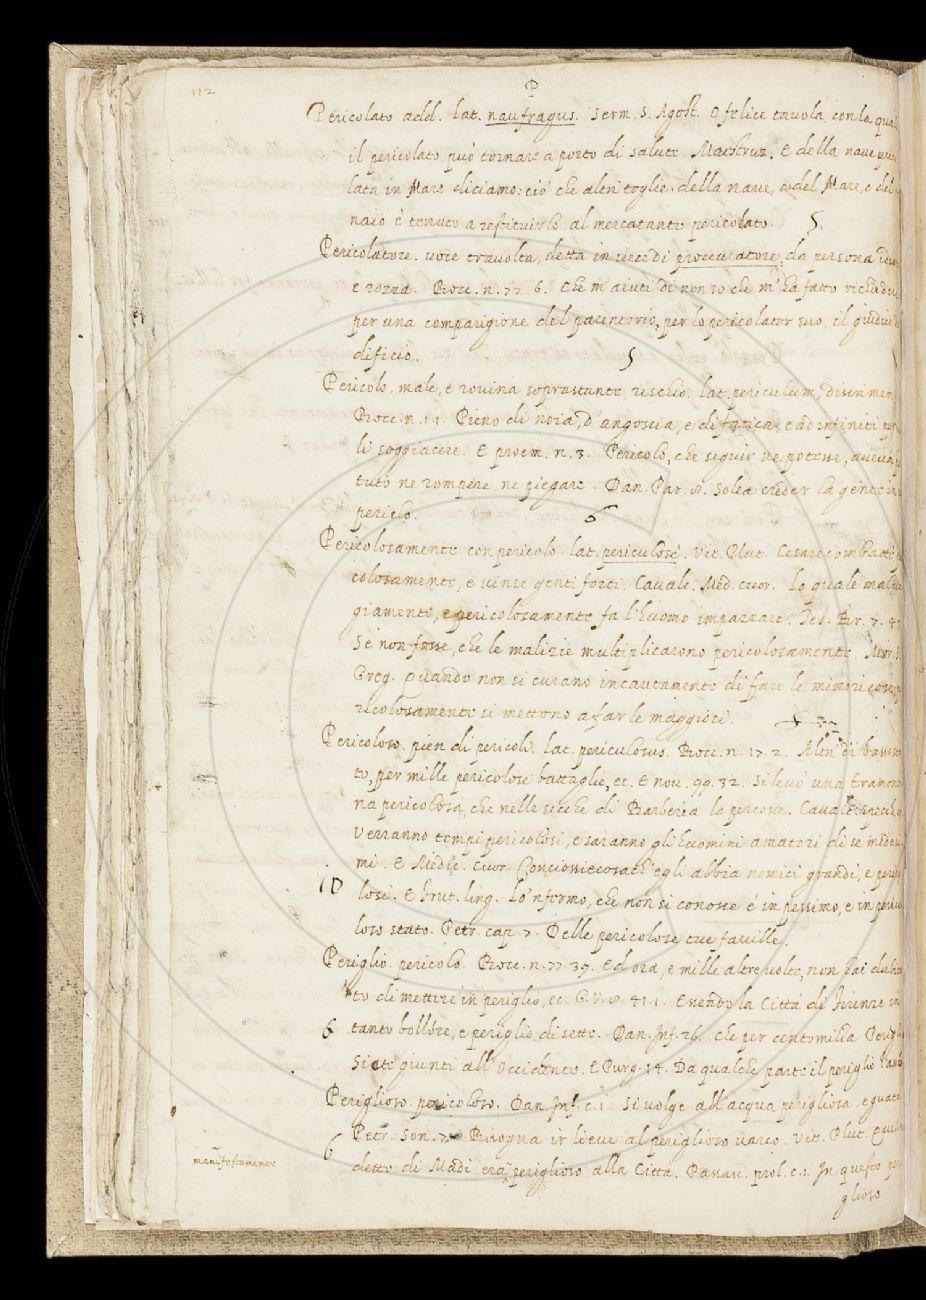 112
P
Pericolato add. lat. naufragus. Serm. S. Agost. O felice tavola, con la qual
il pericolato può tornare a porto di salute. Maestruz. E della nave peric
lata in Mare diciamo: ciò che altri toglie della nave, o del Mare, o del
naio è tenuto a restituirlo al mercatante pericolato. 5.
Pericolatore. voce travolta, detta in vece di proccuratore, da persona idio
e rozza. Bocc. n. 72. 6. Che m'aiuti di non so che m'ha fatto richiedere
per una comparigione del parentorio, per lo pericolator suo, il giudice
dificio. 5
Pericolo, male, e rovina soprastante rischio. lat. periculum, discrimen
Bocc. n. 1. 1. Pieno di noia, d'angoscia, e di fatica, e ad infiniti peri
li soggiacere. E proem. n. 3. Pericolo, che seguir ne potesse, aveva p
tuto ne rompere, ne piegare. Dan. Par. 8. Solea creder la gente in
periclo. 6
Pericolosamente con pericolo. lat. periculosè. Vit. Plut. Cesare combattè
colosamente, e vinse genti forti. Cavalc. Med. cuor. Lo quale malva
giamente, e pericolosamente fa l'huomo impazzare. Tes. Br. 7. 47
Se non fosse, che le malizie multiplicarono pericolosamente. Mor. S.
Greg. Quando non si curano incautamente di fare le minori cose, p
ricolosamente si mettono a far le maggiori.
Pericoloso. pien di pericoli. lat. periculosus. Bocc. n. 17. 2. Altri di basso sta
to, per mille pericolose battaglie, ec. E nov. 99. 32. Si levò una tramonta
na pericolosa, che nelle secche di Barberia la percosse. Cavalc. specch.
Verranno tempi pericolosi, e saranno gli huomini amatori di se medesi
mi. E Medic. cuor. Conciossiecosachè egli abbia nemici grandi, e peri
10 losi. E frut. ling. Lo'nfermo, che non si conosce è in pessimo, e in perico
loso stato. Petr. cap. 7. Delle pericolose tue faville.
Periglio. pericolo. Bocc. n. 77. 39. Ed ora, e mille altre volte, non hai dubita
to di mettere in periglio, ec. G. V. 8. 41. 1. Essendo la Città di Firenze in
6 tanto bollore, e periglio di sette. Dan. Inf. 26. Che per centomilia Perigli
Siete giunti all'Occidente. E Purg. 14. Da qualche parte il periglio l'ass
Periglioso. pericoloso. Dan. Inf. c. 1. Si volge all'acqua perigliosa, e guata
Petr. Son. Bisogna ir lieve al periglioso varco. Vit. Plut.
6 detto di Madi era periglioso alla Città. Passav. prol. c. 1. In questo peri
manifestamente
glioso